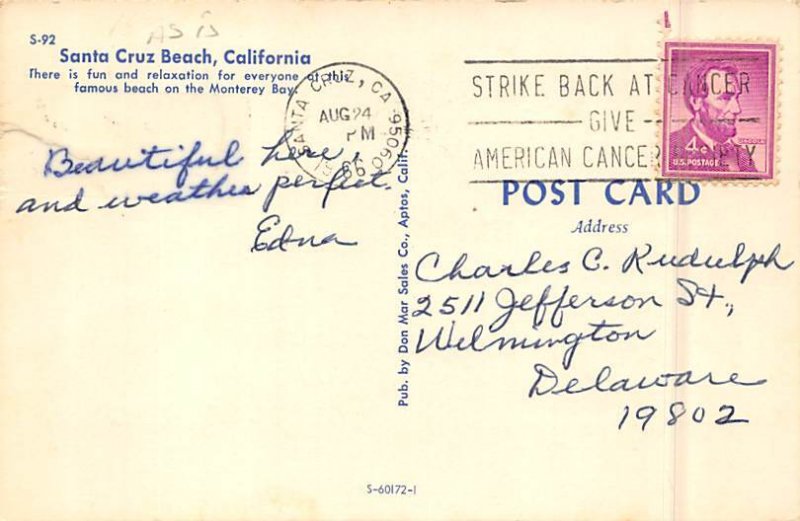 AS IS
S-92
Santa Cruz Beach, California
There is fun and relaxation for everyone at this
famous beach on the Monterey Bay.
SANTA CRUZ, CA 95060
AUG 24
PM
1966
STRIKE BACK AT CANCER
GIVE
AMERICAN CANCER SOCIETY
4¢
U.S. POSTAGE
LINCOLN
Beautiful here,
and weather perfect.
Edna
Pub. by Don Mar Sales Co., Aptos, Calif.
POST CARD
Address
Charles C. Rudulph
2511 Jefferson St.,
Wilmington
Delaware
19802
S-60172-1